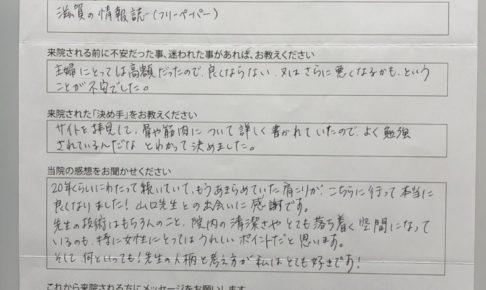 滋賀の情報誌(フリーペーパー)
来院される前に不安だった事、迷われた事があれば、お教えください
主婦にとっては高額だったので、良くならない、又はさらに悪くなるかも、という
ことが不安でした。
来院された「決め手」をお教えください
サイトを拝見して、骨や筋肉について詳しく書かれていたので、よく勉強
されているんだな とわかって決めました。
当院の感想をお聞かせください
20年くらいにわたって続いていて、もうあきらめていた肩こりが、こちらに行って本当に
良くなりました! 山口先生との出会いに感謝です。
先生の技術はもちろんのこと、院内の清潔さやとても落ち着く空間になって
いるのも、特に女性にとってはうれしいポイントだと思います。
そして何といっても!先生の人柄と考え方が私はとても好きです!
これから来院される方にメッセージをお願いします